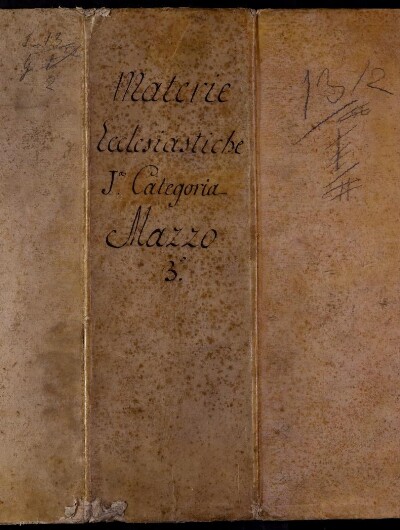 Materie
Ecclesiastiche
J.ª Categoria
Mazzo
3.º
13/2